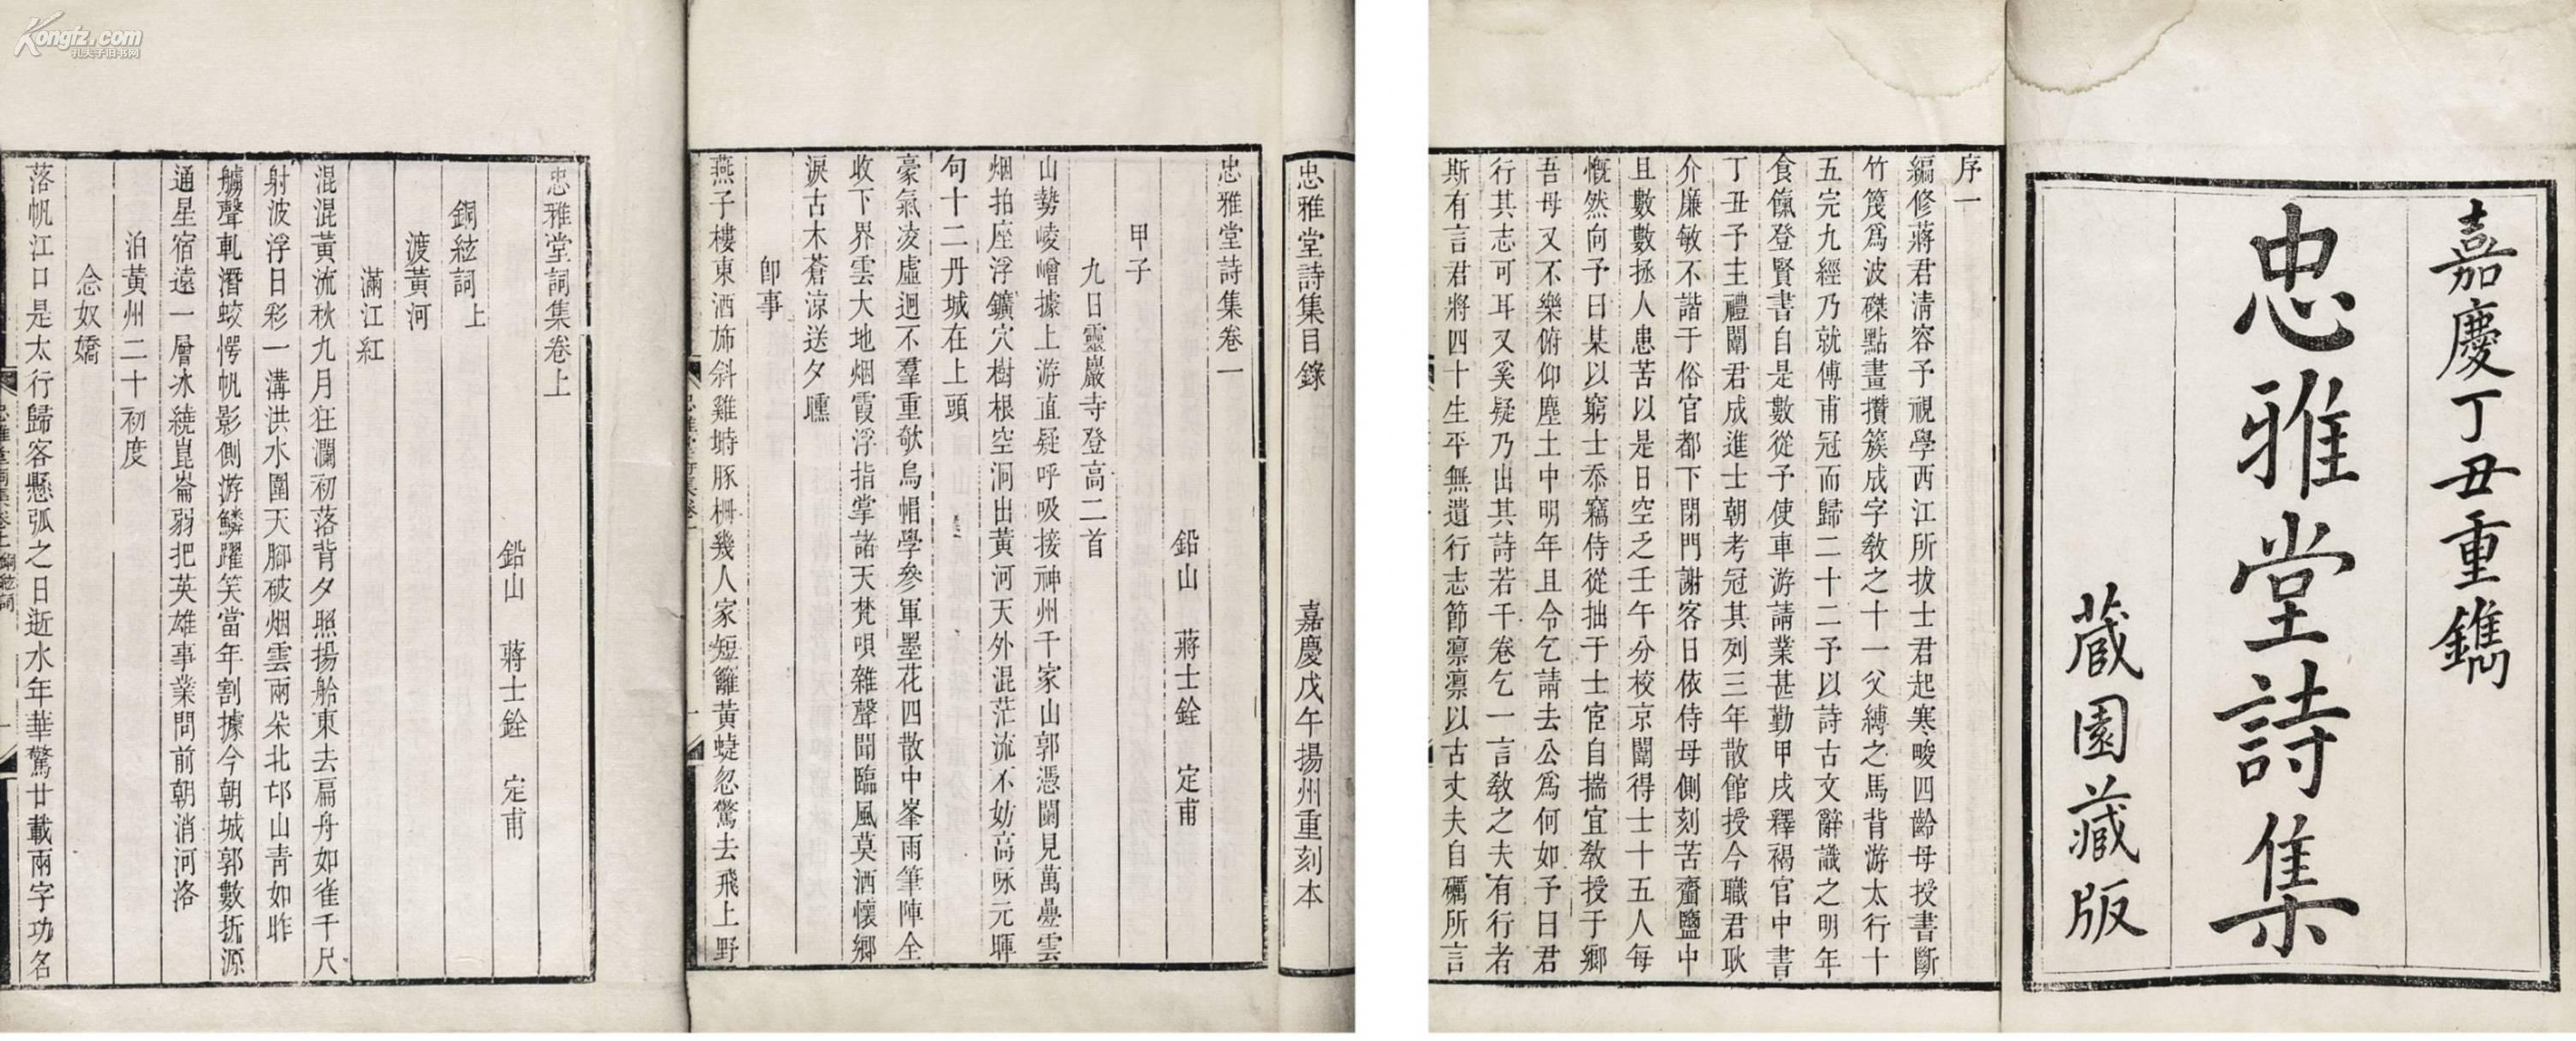 嘉慶丁丑重鐫
忠雅堂詩集
藏園藏版
序一
編修蔣君清容予視學西江所拔士君起寒畯四齡母授書斷
竹篾爲波磔點畫攢簇成字敎之十一父縛之馬背游太行十
五完九經乃就傅甫冠而歸二十二予以詩古文辭識之明年
食餼登賢書自是數從予使車游請業甚勤甲戌釋褐官中書
丁丑予主禮闈君成進士朝考冠其列三年散館授今職君耿
介廉敏不諧于俗官都下閉門謝客日依侍母側刻苦齏鹽中
且數數拯人患苦以是日空乏壬午分校京闈得士十五人每
慨然向予曰某以窮士忝竊侍從拙于士宦自揣宜敎授于鄉
吾母又不樂俯仰塵土中明年且令乞請去公爲何如予曰君
行其志可耳又奚疑乃出其詩若干卷乞一言敎之夫有行者
斯有言君將四十生平無遺行志節凛凛以古丈夫自礪所言
忠雅堂詩集目錄
嘉慶戊午揚州重刻本
忠雅堂詩集卷一
鉛山 蔣士銓 定甫
甲子
九日靈巖寺登高二首
山勢崚嶒據上游直疑呼吸接神州千家山郭憑闌見萬疊雲
烟拍座浮鑛穴樹根空洞出黃河天外混茫流不妨高咏元暉
句十二丹城在上頭
豪氣凌虛迥不羣重欹烏帽學參軍墨花四散中峯雨筆陣全
收下界雲大地烟霞浮指掌諸天梵唄雜聲聞臨風莫洒懷鄉
淚古木蒼涼送夕曛
卽事
燕子樓東酒斾斜雞塒豚柵幾人家短籬黃蜨忽驚去飛上野
忠雅堂詩集卷一
忠雅堂詞集卷上
鉛山 蔣士銓 定甫
銅絃詞上
渡黃河
滿江紅
混混黃流秋九月狂瀾初落背夕照揚舲東去扁舟如雀千尺
射波浮日彩一溝洪水圍天腳破烟雲兩朵北邙山靑如昨
艣聲軋潛蛟愕帆影側游鱗躍笑當年割據今朝城郭數折源
通星宿遠一層冰繞崑崙弱把英雄事業問前朝消河洛
泊黃州二十初度
念奴嬌
落帆江口是太行歸客懸弧之日逝水年華驚廿載兩字功名
忠雅堂詞集卷上 銅絃詞
Kongfz.com
孔夫子旧书网